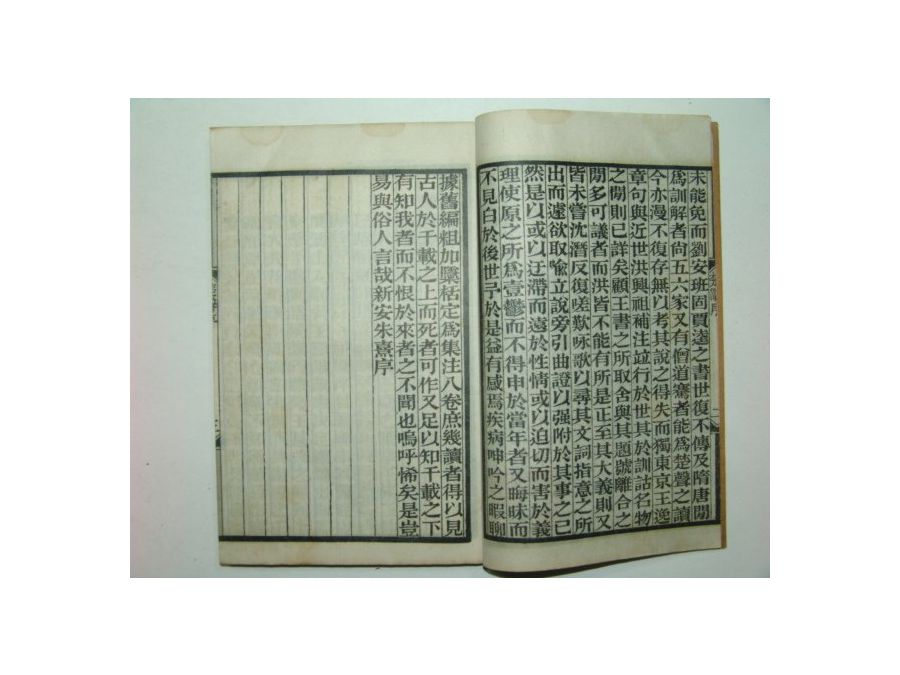 未能免而劉安班固賈逵之書世復不傳及隋唐閒
爲訓解者尙五六家又有僧道騫者能爲楚聲之讀
今亦漫不復存無以考其說之得失而獨東京王逸
章句與近世洪興祖補注竝行於世其於訓詁名物
之閒則已詳矣顧王書之所取舍與其題號離合之
閒多可議者而洪皆不能有所是正至其大義則又
皆未嘗沈潛反復嗟歎咏歌以尋其文詞指意之所
出而遽欲取喩立說旁引曲證以强附於其事之已
然是以或以迂滯而遠於性情或以迫切而害於義
理使原之所爲壹鬱而不得申於當年者又晦昧而
不見白於後世予於是益有感焉疾病呻吟之暇聊
據舊編粗加檃栝定爲集注八卷庶幾讀者得以見
古人於千載之上而死者可作又足以知千載之下
有知我者而不恨於來者之不聞也嗚呼悕矣是豈
易與俗人言哉新安朱熹序